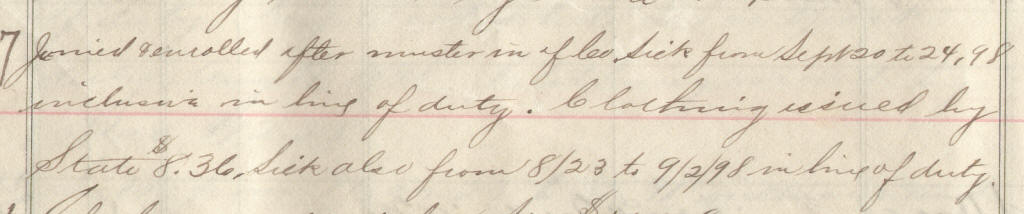 Joined & enrolled after muster in of Co. Sick from Sept 20 to 24, 98
inclusive in line of duty. Clothing issued by
State $8.36, Sick also from 8/23 to 9/2/98 in line of duty.